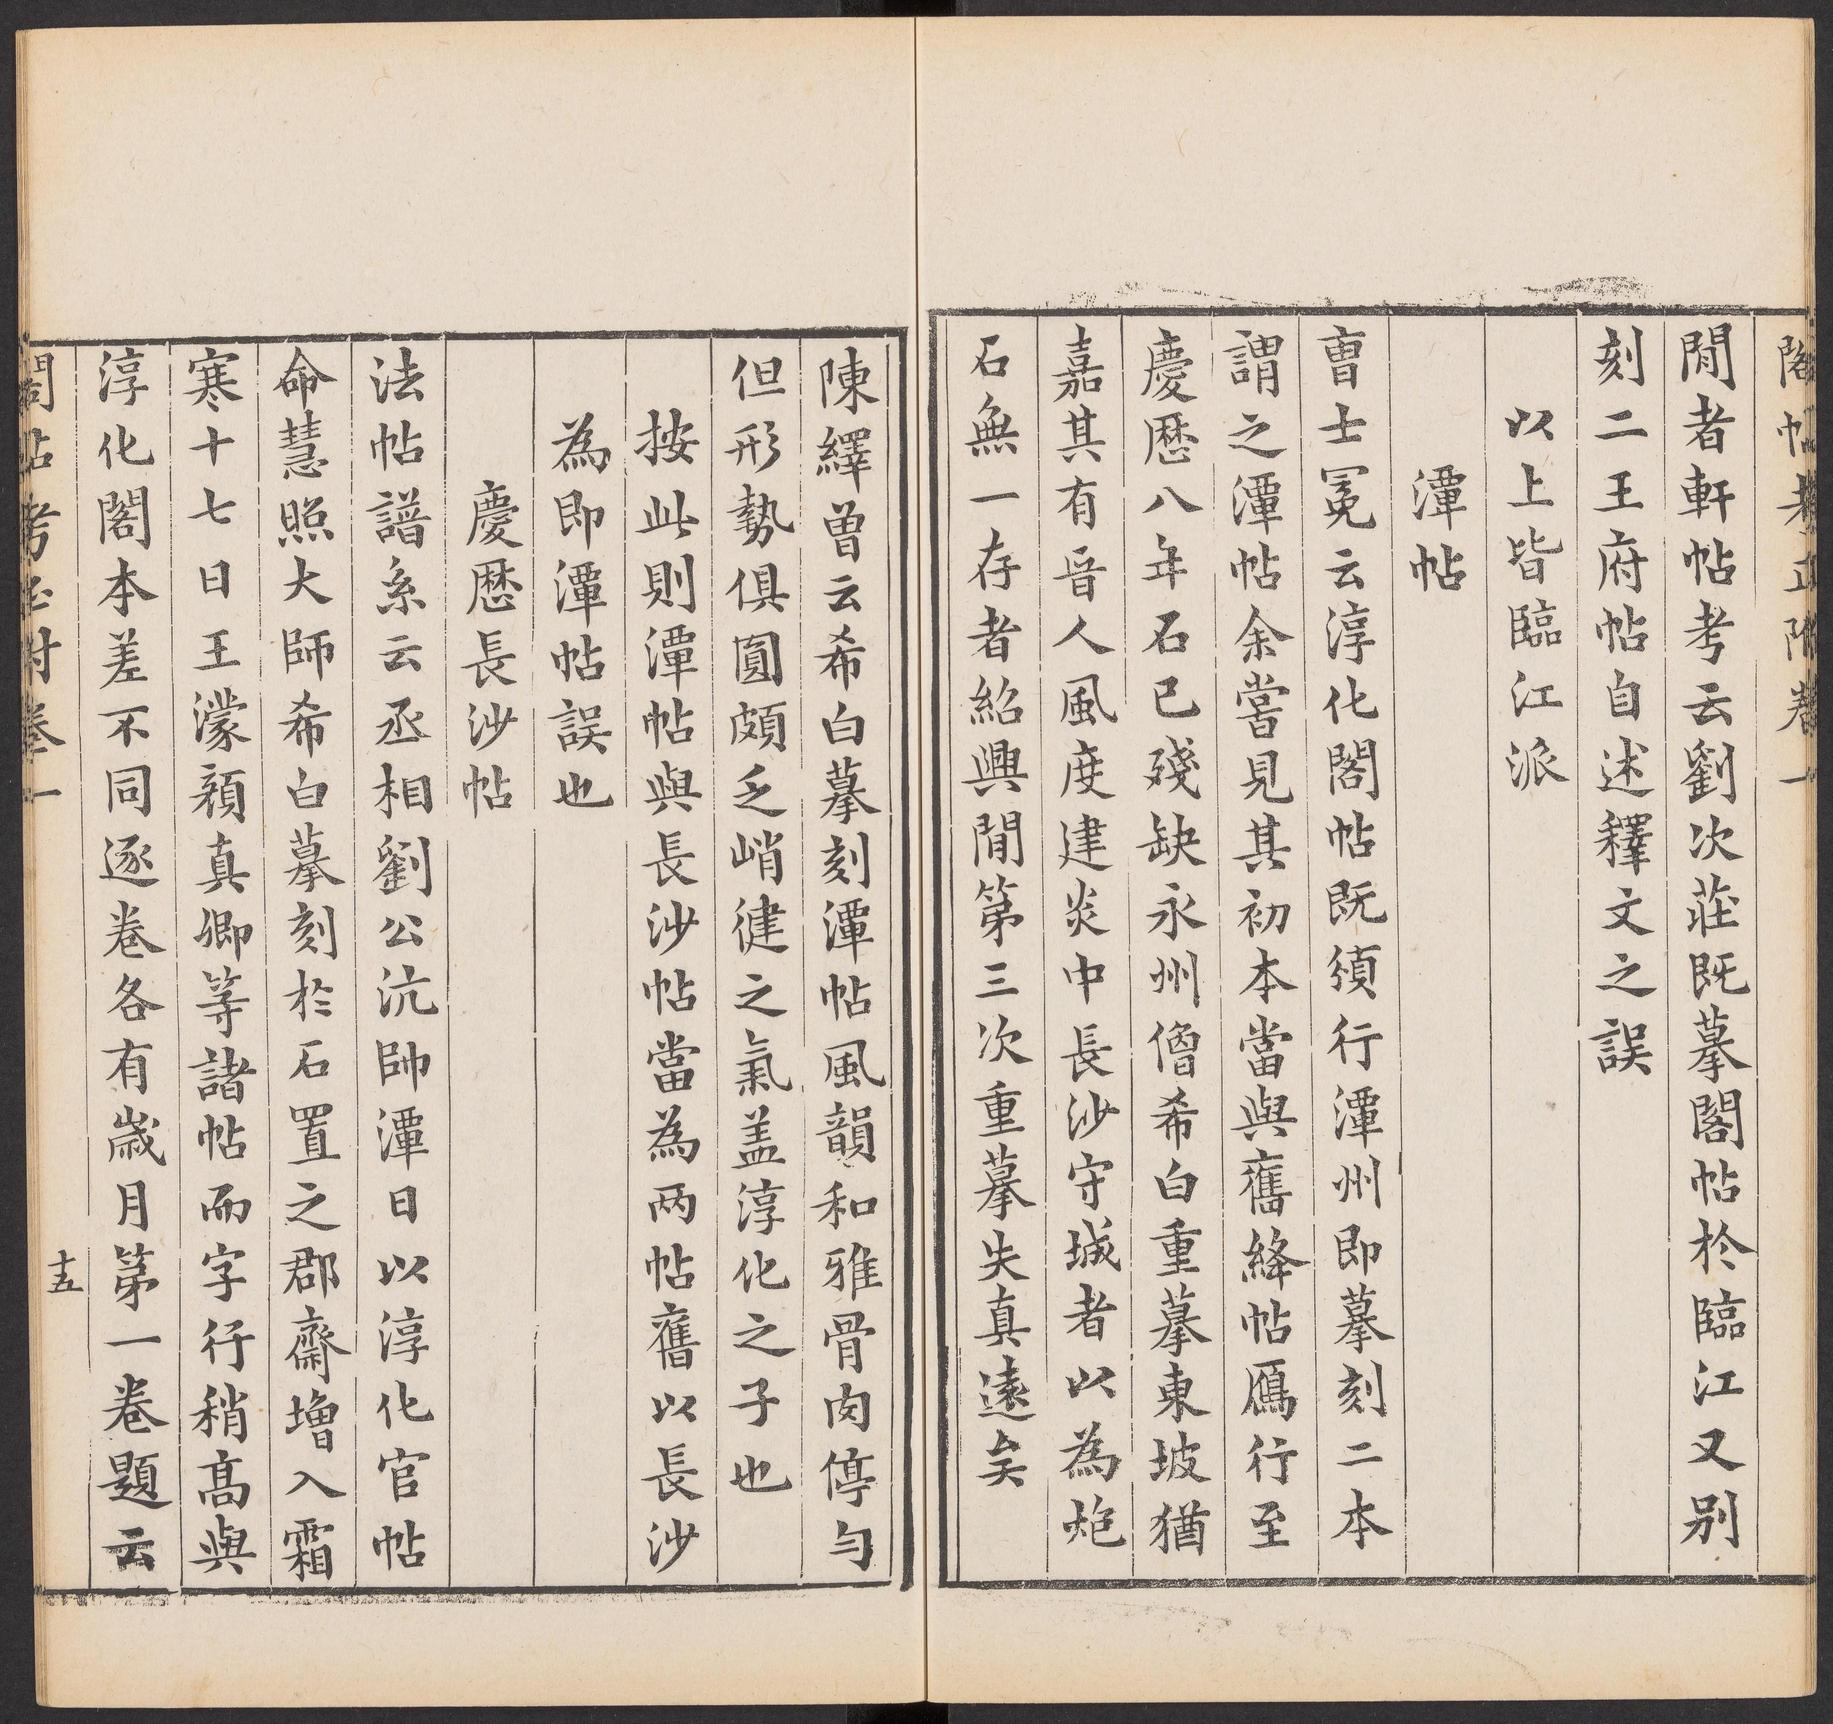 閣帖考正附卷一
閒者軒帖考云劉次莊既摹閣帖於臨江又别
刻二王府帖自述釋文之誤
以上皆臨江派
潭帖
曺士冕云淳化閣帖既頒行潭州即摹刻二本
謂之潭帖余嘗見其初本當與舊絳帖鴈行至
慶歴八年石已殘缺永州僧希白重摹東坡猶
嘉其有晉人風度建炎中長沙守城者以為炮
石無一存者紹興閒第三次重摹失真遠矣
陳繹曾云希白摹刻潭帖風韻和雅骨肉停匀
但形勢俱圓頗乏峭健之氣盖淳化之子也
按此則潭帖與長沙帖當為两帖舊以長沙
為即潭帖誤也
慶歴長沙帖
法帖譜系云丞相劉公沆帥潭日以淳化官帖
命慧照大師希白摹刻於石置之郡齋增入霜
寒十七日王濛顔真卿等諸帖而字行稍髙與
淳化閣本差不同逐卷各有歲月第一卷題云
閣帖考正附卷一
十五